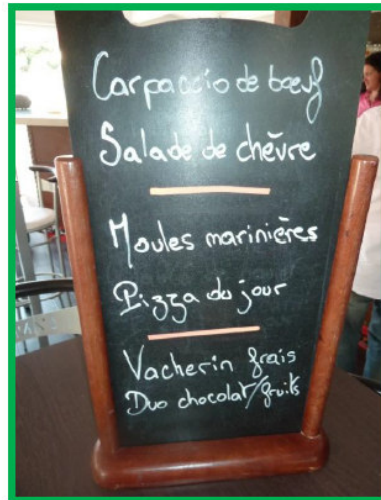 Carpaccio de bœuf
Salade de chèvre
Moules marinières
Pizza du jour
Vacherin frais
Duo chocolat/fruits